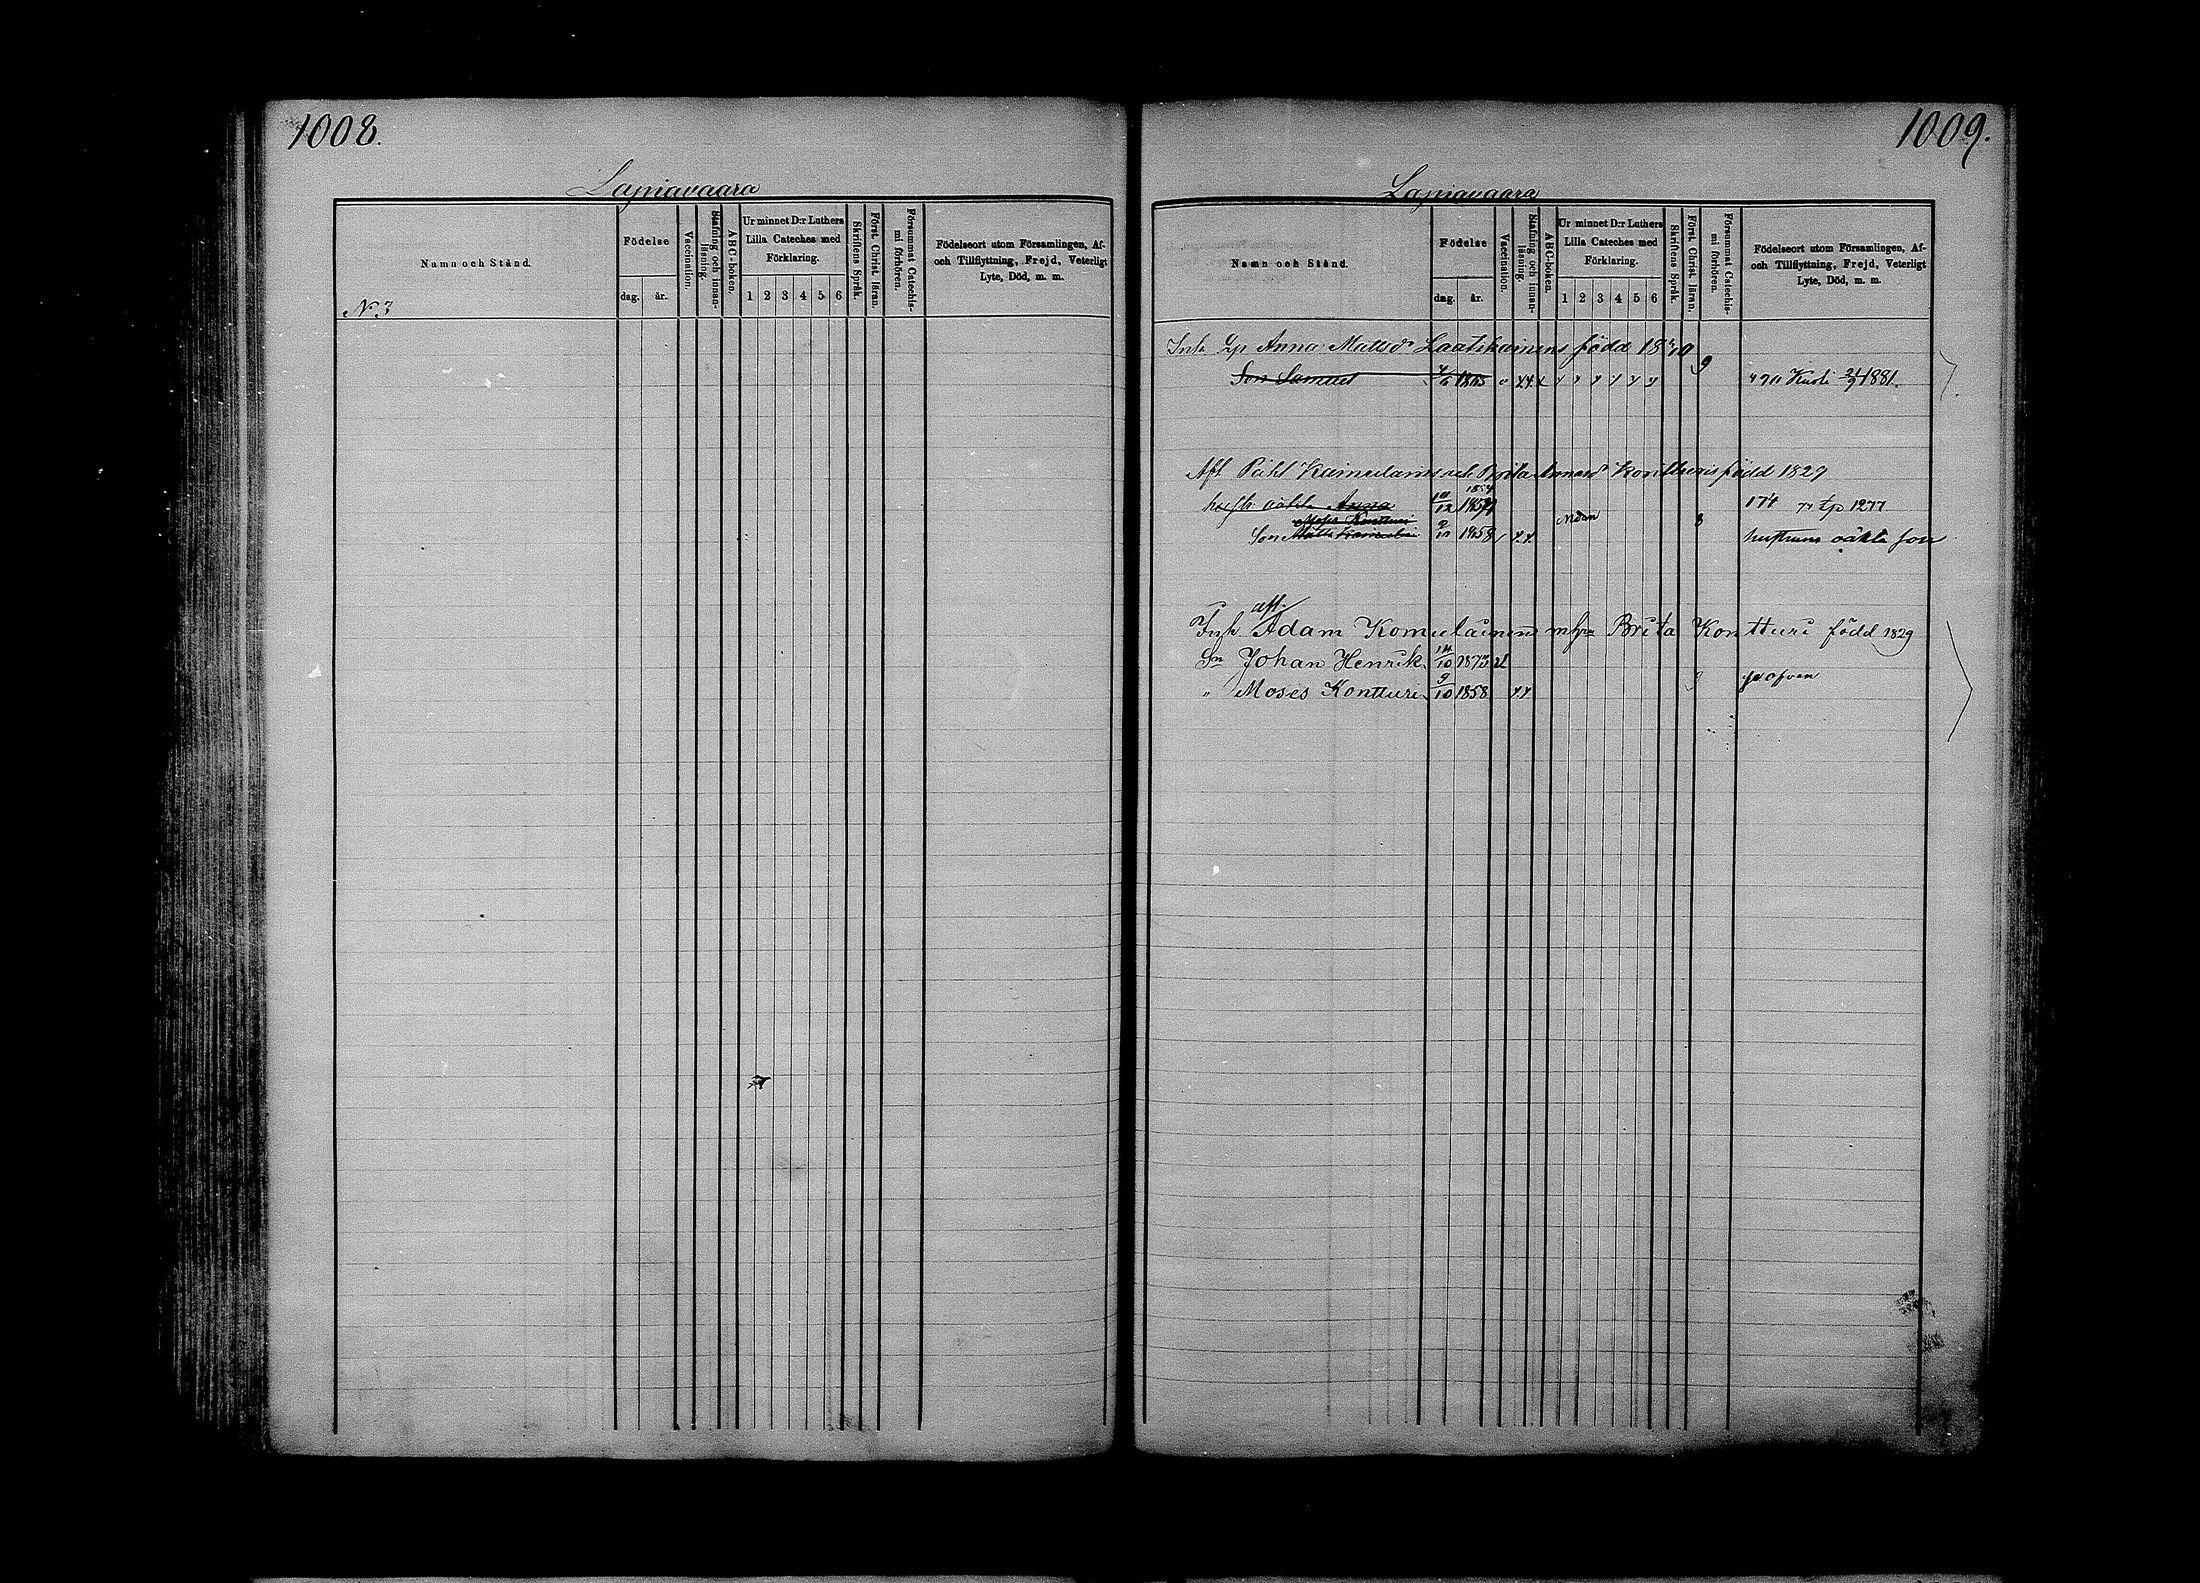 1008.
Lapiavaara
Namn och Stånd.
Födelse
dag.
år.
Vaccination.
Stafning och innan-
läsning.
ABC-boken.
Ur minnet D:r Luthers
Lilla Cateches med
Förklaring.
1 2 3 4 5 6
Skriftens Språk.
Först. Christ. läran.
Försummat Catechis-
mi förhören.
Födelseort utom Församlingen, Af-
och Tillflyttning, Frejd, Veterligt
Lyte, Död, m. m.
N:3
1009.
Lapiavaara
Namn och Stånd.
Födelse
dag.
år.
Vaccination.
Stafning och innan-
läsning.
ABC-boken.
Ur minnet D:r Luthers
Lilla Cateches med
Förklaring.
1 2 3 4 5 6
Skriftens Språk.
Först. Christ. läran.
Försummat Catechis-
mi förhören.
Födelseort utom Församlingen, Af-
och Tillflyttning, Frejd, Veterligt
Lyte, Död, m. m.
Anna Mattsdr född
Son Samuel 1865 21/9 1881.
Afl. född 1827
oäkta Anna 12 1854 174 1277
Moses Kontturi
Son 9/10 1858 hustruns oäkta son
afl.
Adam Komulainens Brita Kontturi född 1829
Sn Johan Henrik 14/10 1873
" Moses Kontturi 9/10 1858